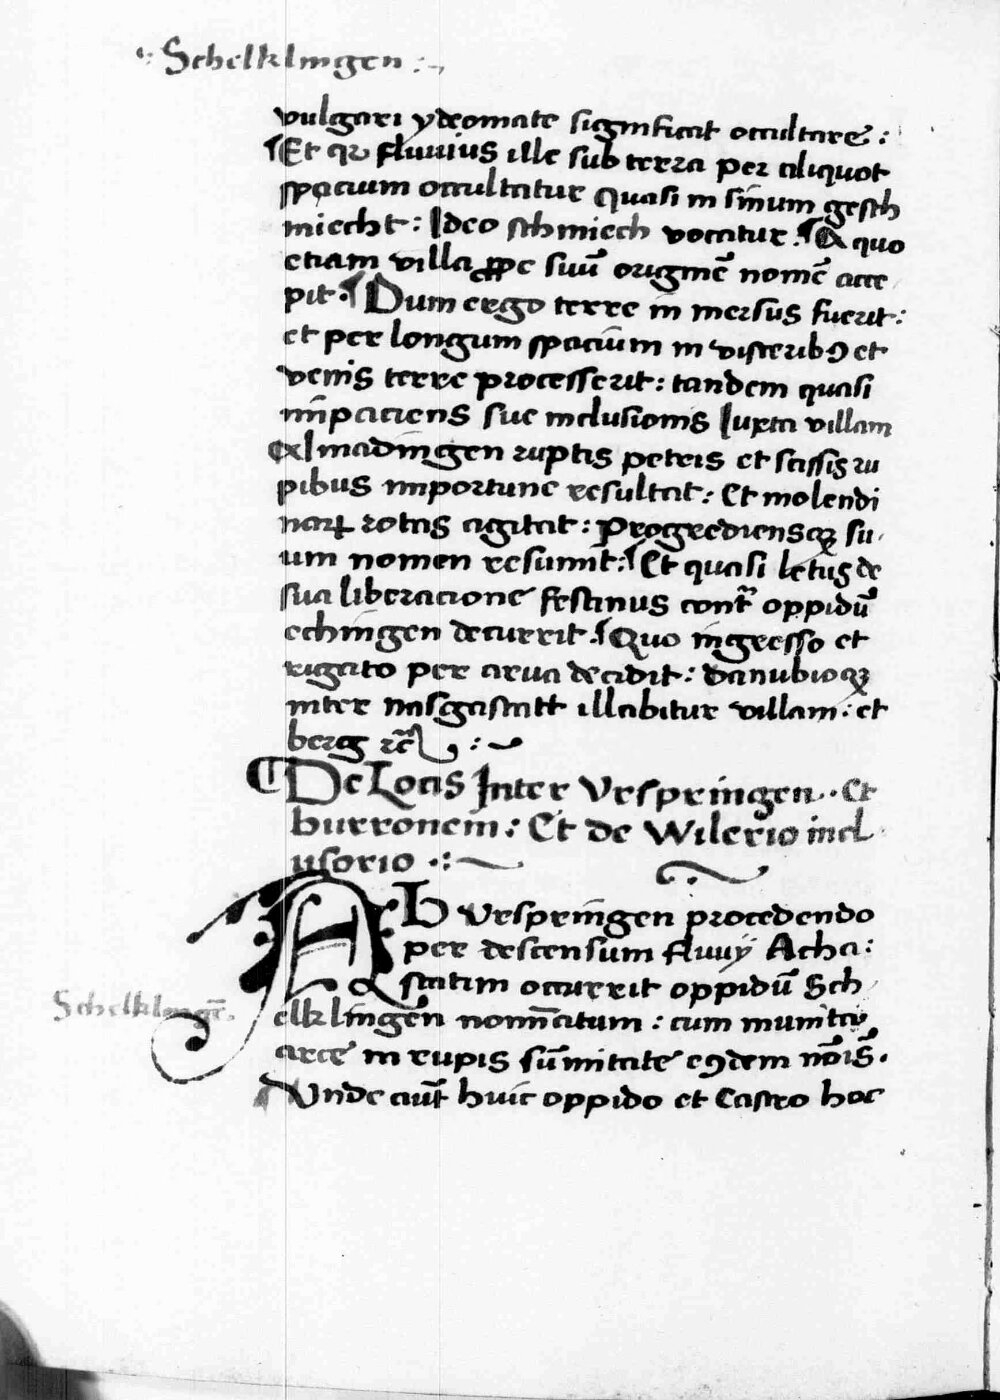 ·: Schelklingen :~
vulgari ydeomate significat occultare :
¶Et qꝛ fluuius ille sub terra per aliquot
spacium occultatur quasi in sinum gesch
miecht : Ideo schmiech vocatur : ¶ A quo
etiam villa ꝓpe suū originē nomē acce
pit · ¶ Dum ergo terre in mersus fuerit :
et per longum spacium in visceribꝯ et
venis terre processerit : tandem quasi
impaciens sue inclusionis Iuxta villam
Almadingen ruptis petris et scissis ru
pibus importune resultat : Et molendi
naꝝ rotas agitat : Progrediensqꝫ su
um nomen resumit : ¶ Et quasi letus de
sua liberacione festinus contᷓ oppidū
echingen decurrit · ¶ Quo ingresso et
rigato per arua decidit : danubioqꝫ
inter nasgastatt illabitur villam : et
berg ꝛc̄ , : ~
¶ De Locis Inter Vrspringen · Et
burronem : Et de Wilerio incl
usorio · : ~
AB Vrspringen procedendo
per descensum fluuij Acha :
statim occurrit oppidū Sch
elklingen nominatum : cum munita
arce in rupis sūmitate eꝯdem nōis ·
Schelklingē ·
Vnde aūt huic oppido et Castro hoc